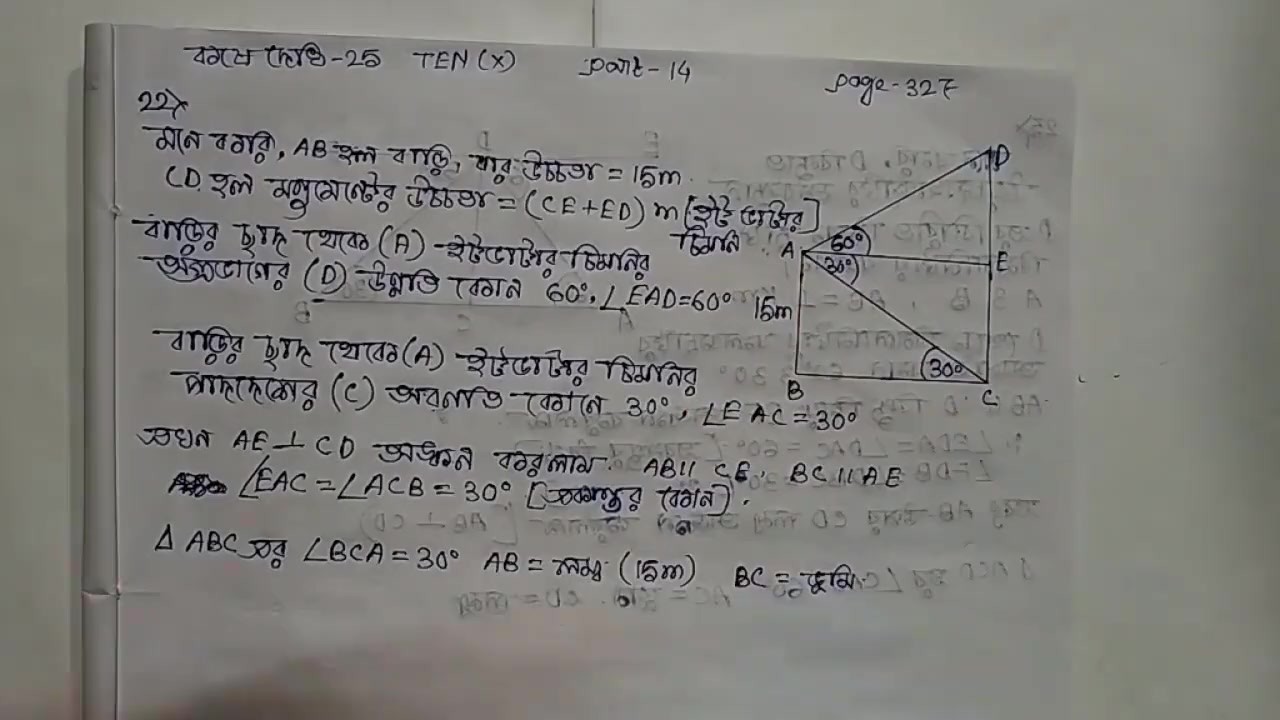 কষে দেখি-25 TEN (X) part-14 page-327
22)
মনে করি, AB হল বাড়ি, যার উচ্চতা = 15m.
CD হল মনুমেন্টের উচ্চতা = (CE+ED) m [ইট ভাটার চিমনি]
বাড়ির ছাদ থেকে (A) ইটভাটার চিমনির
অগ্রভাগের (D) উন্নতি কোন 60°, ∠EAD=60°
বাড়ির ছাদ থেকে (A) ইটভাটার চিমনির
পাদদেশের (C) অবনতি কোন 30°, ∠EAC = 30°
এখন AE⊥CD অঙ্কন করলাম. AB∥CE, BC∥AE
∠EAC = ∠ACB = 30° [একান্তর কোন].
Δ ABC এর ∠BCA = 30° AB = লম্ব (15m) BC = ভূমি
D
A 60° E
30°
15m
30°
B C